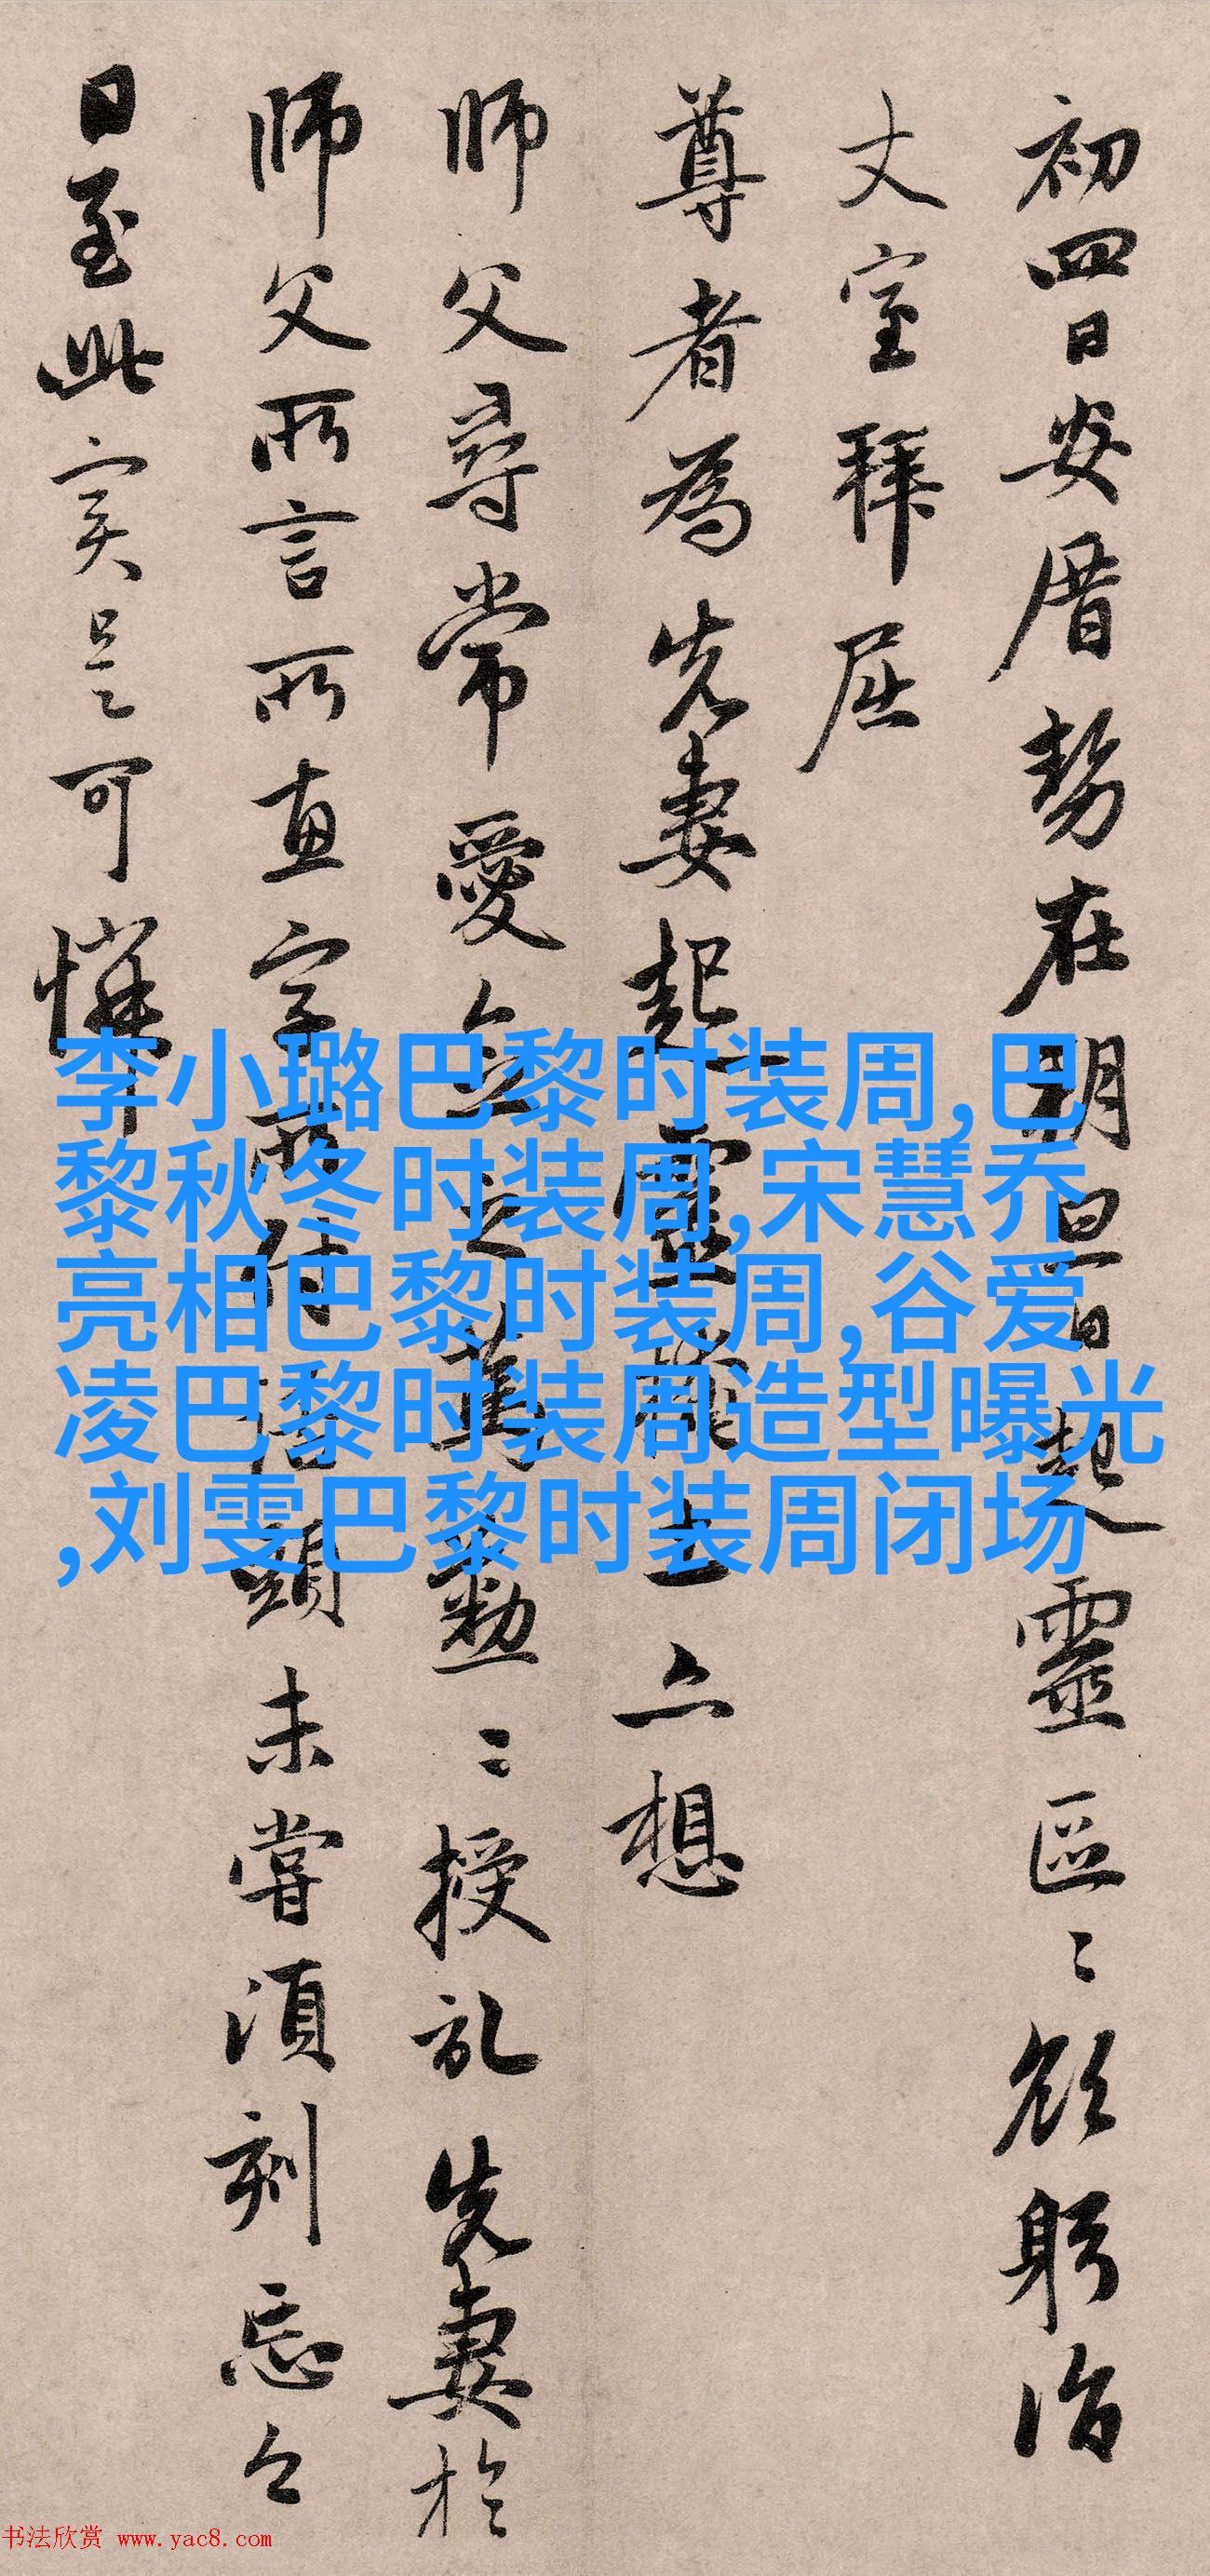 初四日安厝勢在明
昌日起靈區〻欲躬詣
丈室拜屈
尊者為先妻起靈
亡想
師父尋常愛念之
〻授記先妻於
師父所言所惠字
所付話頭未嘗須刻忘之
日至此實是可憐
李小璐巴黎时装周,巴
黎秋冬时装周,宋慧乔
亮相巴黎时装周,谷爱
凌巴黎时装周造型曝光
,刘雯巴黎时装周闭场
书法欣赏 www.yac8.com